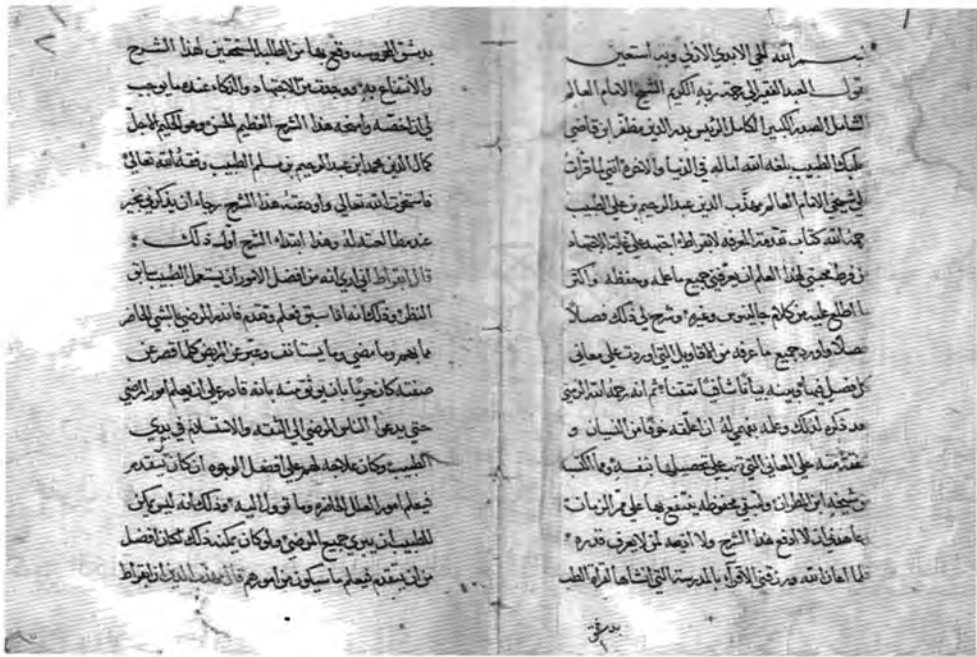 بسم الله الحي الابدي الازلي وبه استعين
يقول العبد الفقير الي رحمة ربه الكريم الشيخ الامام العالم
الشامل الصدر الكبير الكامل الرئيس بدر الدين مظفر ابن قاضي
بعلبك الطبيب بلغه الله اماله في الدنيا والاخرة انني لما قرات
علي شيخي الامام العالم مهذب الدين عبد الرحيم بن علي الطبيب
رحمه الله كتاب تقدمة المعرفه لابقراط اجتهد علي غاية الاجتهاد
من فرط محبتي لهذا العلم ان يعرفني جميع ما علمه وحفظه واكثر
ما اطلع عليه من كلام جالينوس وغيره وشرح لي ذلك فصلاً
فصلا واورد جميع ما عرفه من الاقاويل التي اوردت علي معاني
كل فصل فيها وبينه بياناً شافياً متقناً ثم انه رحمه الله
بعد ذكره لذلك وعلمه بفهمي له ان اعلقه خوفا من النسيان و
علقته منه علي المعاني التي تعب علي تحصيلها بنفسه ومما اكتسبه
من شيخه ابن المطران وتبقي محفوظه ينتفع بها علي ممر الزمان
وعاهدني ان لا ادفع هذا الشرح ولا لمن لا يعرف قدره
فلما اعان الله ورزقني الاقراء بالمدرسة التي انشاها لقراة الطب
بدمشق
بدمشق المحروسه وقع بها من الطلبه المستحقين لهذا الشرح
والانتفاع به ووجدت من الاجتهاد والذكاء عنده ما يوجب
لي ان اخصه وامنحه هذا الشرح العظيم وهو الحكيم الاجل
كمال الدين محمد ابن عبد الرحيم بن مسلم الطبيب وفقه الله تعالي
فاستخرت الله تعالي واودعته هذا الشرح رجاء ان يذكرني بخير
عند مطالعته له وهذا ابتداء الشرح اول ذلك
قال ابقراط اني اري انه من افضل الامور ان يستعمل الطبيب سابق
النظر وذلك انه اذا سبق فعلم وتقدم فانذر المرضي بالشي الحاضر
مما بهم وما مضي وما يستانف وعبر عن المريض كلما قصر عن
صفته كان حريا بان يوثق منه بانه قادر علي ان يعلم امور المرضي
حتي يدعوا الناس المرضي الي الثقه والاستسلام في يدي
الطبيب وكان علاجه لهم علي افضل الوجوه ان كان يتقدم
فيعلم امور العلل الحاضره وما تؤول اليه وذلك انه ليس يمكن
للطبيب ان يبري جميع المرضي ولو كان يمكنه ذلك لكان افضل
من ان يتقدم فيعلم ما سيكون من امورهم قال مهذب الدين ان ابقراط